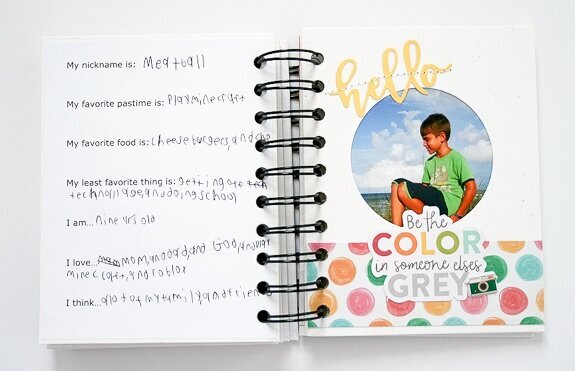 My nickname is: Meatball
My favorite pastime is: Playminecraft
My favorite food is: cheeseburgers, and
My least favorite thing is: getting off tech
technollige, and doing school
I am... nine yrs old
I love... mom, and dad, and God, and
minecraft, and roblox
I think... alot of my family, and friends
hello
Be the
COLOR
in someone elses
GREY